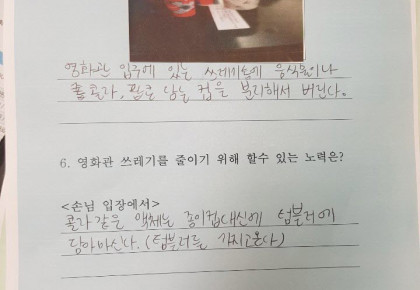 영화관 입구에 있는 쓰레기통에 음식물이나
콜라, 팝콘 담는 컵을 분리해서 버린다.
6. 영화관 쓰레기를 줄이기 위해 할수 있는 노력은?
<손님 입장에서>
콜라 같은 액체는 종이컵대신에 텀블러에
담아마신다. (텀블러를 가지고온다)